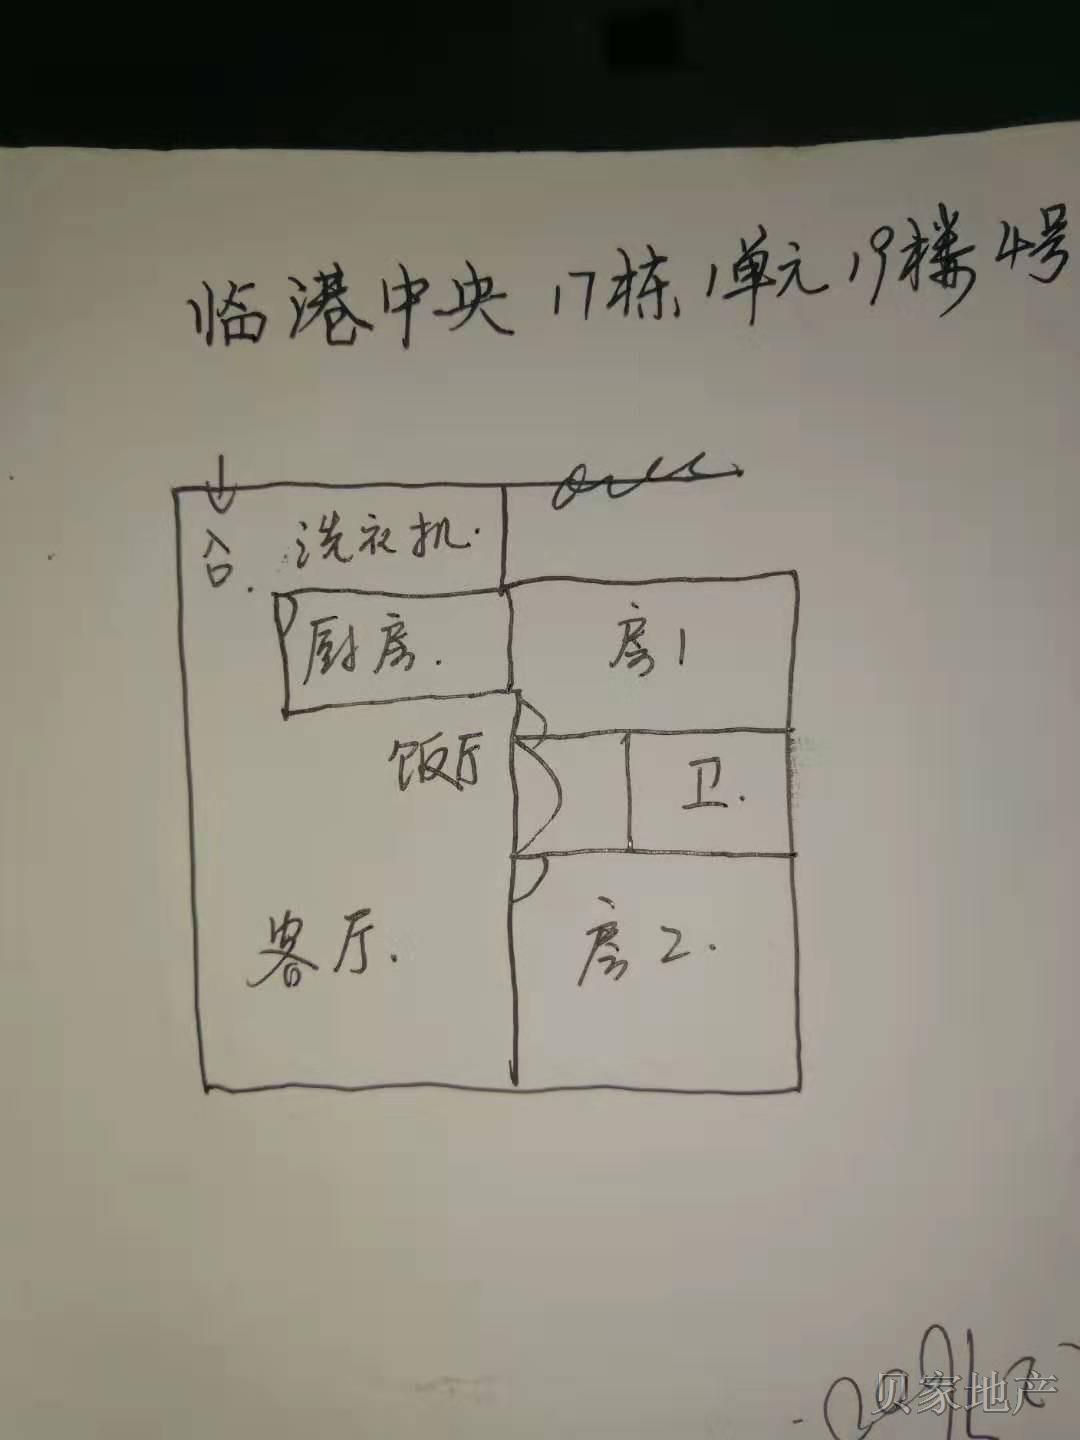 临港中央 17栋1单元19楼4号
入口.
洗衣机.
厨房.
房1
饭厅
卫.
客厅.
房2.
贝家地产